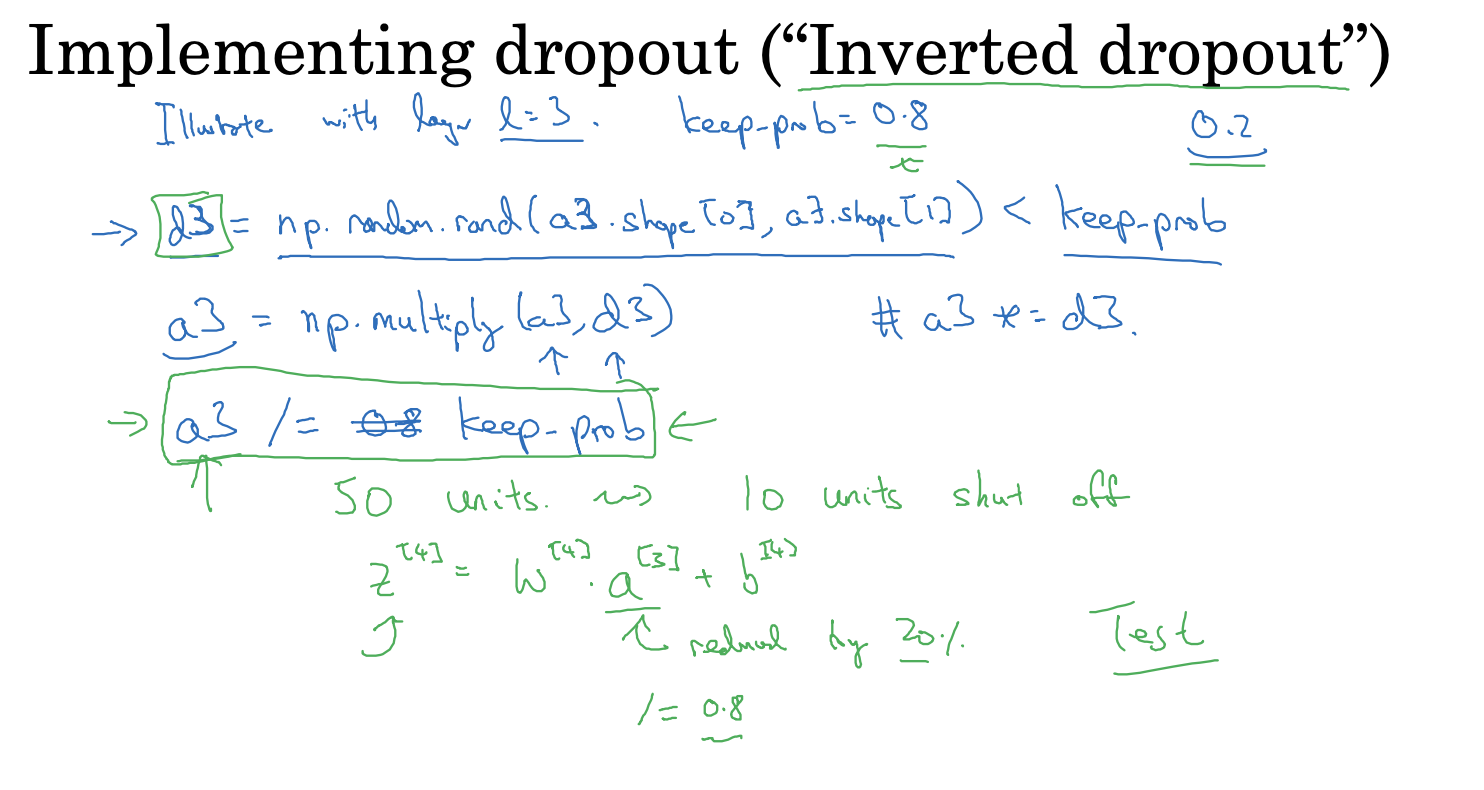 Implementing dropout (“Inverted dropout”)
Illustrate with layer l=3. keep-prob = 0.8 0.2
→ d3 = np.random.rand(a3.shape[0], a3.shape[1]) < keep-prob
a3 = np.multiply(a3, d3) # a3 *= d3.
→ a3 /= 0.8 keep-prob ←
50 units. ⇝ 10 units shut off
z[4] = W[4] . a[3] + b[4]
reduced by 20% Test
/= 0.8